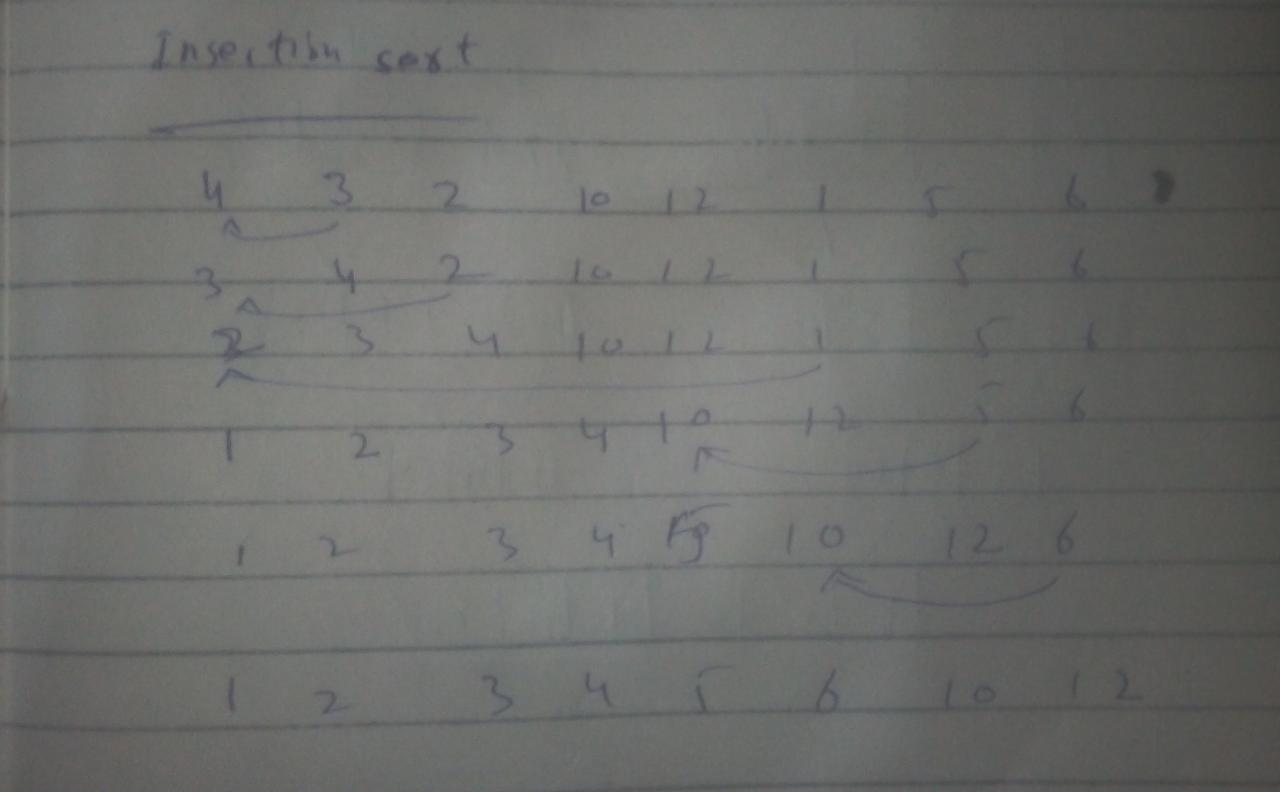 Insertion sort
4 3 2 10 12 1 5 6
3 4 2 10 12 1 5 6
2 3 4 10 12 1 5 6
1 2 3 4 10 12 5 6
1 2 3 4 5 10 12 6
1 2 3 4 5 6 10 12